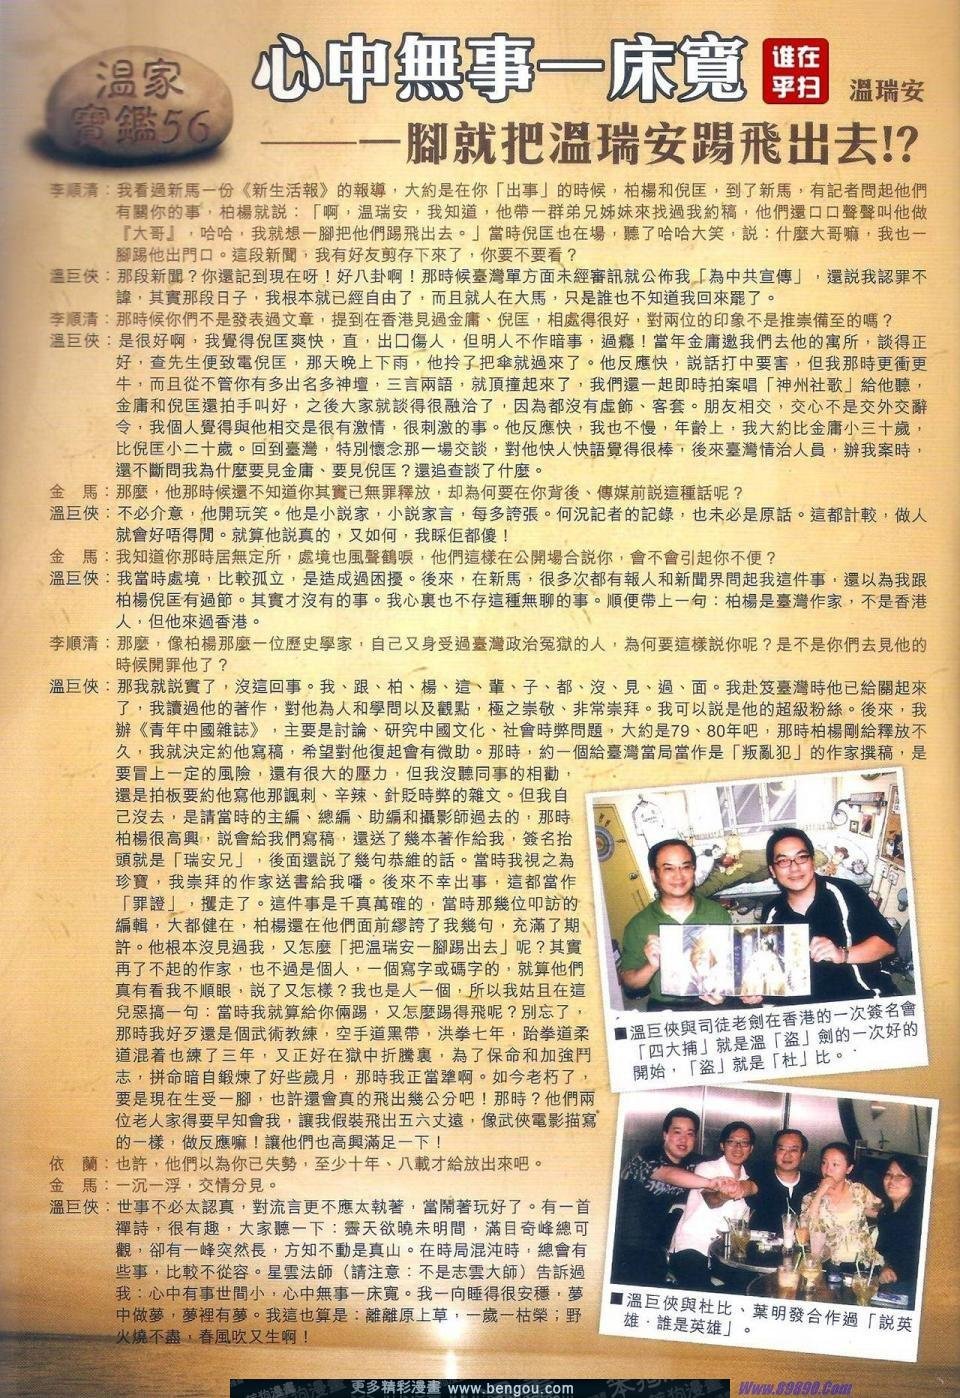 溫家
寶鑑56
心中無事一床寬
谁在
乎扫
溫瑞安
——一腳就把溫瑞安踢飛出去!?
李順清：我看過新馬一份《新生活報》的報導，大約是在你「出事」的時候，柏楊和倪匡，到了新馬，有記者問起他們
有關你的事，柏楊就說：「啊，溫瑞安，我知道，他帶一群弟兄姊妹來找過我約稿，他們還口口聲聲叫他做
『大哥』，哈哈，我就想一腳把他們踢飛出去。」當時倪匡也在場，聽了哈哈大笑，說：什麼大哥嘛，我也一
腳踢他出門口。這段新聞，我有好友剪存下來了，你要不要看？
溫巨俠：那段新聞？你還記到現在呀！好八卦啊！那時候臺灣單方面未經審訊就公佈我「為中共宣傳」，還說我認罪不
諱，其實那段日子，我根本就已經自由了，而且就人在大馬，只是誰也不知道我回來罷了。
李順清：那時候你們不是發表過文章，提到在香港見過金庸、倪匡，相處得很好，對兩位的印象不是推崇備至的嗎？
溫巨俠：是很好啊，我覺得倪匡爽快，直，出口傷人，但明人不作暗事，過癮！當年金庸邀我們去他的寓所，談得正
好，查先生便致電倪匡，那天晚上下雨，他拎了把傘就過來了。他反應快，說話打中要害，但我那時更衝更
牛，而且從不管你有多出名多神壇，三言兩語，就頂撞起來了，我們還一起即時拍案唱「神州社歌」給他聽，
金庸和倪匡還拍手叫好，之後大家就談得很融洽了，因為都沒有虛飾、客套。朋友相交，交心不是交外交辭
令，我個人覺得與他相交是很有激情，很刺激的事。他反應快，我也不慢，年齡上，我大約比金庸小三十歲，
比倪匡小二十歲。回到臺灣，特別懷念那一場交談，對他快人快語覺得很棒，後來臺灣情治人員，辦我案時，
還不斷問我為什麼要見金庸、要見倪匡？還追查談了什麼。
金　馬：那麼，他那時候還不知道你其實已無罪釋放，却為何要在你背後、傳媒前說這種話呢？
溫巨俠：不必介意，他開玩笑。他是小說家，小說家言，每多誇張。何況記者的記錄，也未必是原話。這都計較，做人
就會好唔得閒。就算他說真的，又如何，我睬佢都傻！
金　馬：我知道你那時居無定所，處境也風聲鶴唳，他們這樣在公開場合說你，會不會引起你不便？
溫巨俠：我當時處境，比較孤立，是造成過困擾。後來，在新馬，很多次都有報人和新聞界問起我這件事，還以為我跟
柏楊倪匡有過節。其實才沒有的事。我心裏也不存這種無聊的事。順便帶上一句：柏楊是臺灣作家，不是香港
人，但他來過香港。
李順清：那麼，像柏楊那麼一位歷史學家，自己又身受過臺灣政治冤獄的人，為何要這樣說你呢？是不是你們去見他的
時候開罪他了？
溫巨俠：那我就說實了，沒這回事。我、跟、柏、楊、這、輩、子、都、沒、見、過、面。我赴笈臺灣時他已給關起來
了，我讀過他的著作，對他為人和學問以及觀點，極之崇敬、非常崇拜。我可以說是他的超級粉絲。後來，我
辦《青年中國雜誌》，主要是討論、研究中國文化、社會時弊問題，大約是79、80年吧，那時柏楊剛給釋放不
久，我就決定約他寫稿，希望對他復起會有微助。那時，約一個給臺灣當局當作是「叛亂犯」的作家撰稿，是
要冒上一定的風險，還有很大的壓力，但我沒聽同事的相勸，
還是拍板要約他寫他那諷刺、辛辣、針貶時弊的雜文。但我自
己沒去，是請當時的主編、總編、助編和攝影師過去的，那時
柏楊很高興，說會給我們寫稿，還送了幾本著作給我，簽名抬
頭就是「瑞安兄」，後面還說了幾句恭維的話。當時我視之為
珍寶，我崇拜的作家送書給我囉。後來不幸出事，這都當作
「罪證」，攫走了。這件事是千真萬確的，當時那幾位叩訪的
編輯，大都健在，柏楊還在他們面前繆誇了我幾句，充滿了期
許。他根本沒見過我，又怎麼「把溫瑞安一腳踢出去」呢？其實
再了不起的作家，也不過是個人，一個寫字或碼字的，就算他們
真有看我不順眼，說了又怎樣？我也是人一個，所以我姑且在這
兒惡搞一句：當時我就算給你倆踢，又怎麼踢得飛呢？別忘了，
那時我好歹還是個武術教練，空手道黑帶，洪拳七年，跆拳道柔
道混着也練了三年，又正好在獄中折騰裏，為了保命和加強鬥
志，拼命暗自鍛煉了好些歲月，那時我正當犟啊。如今老朽了，
要是現在生受一腳，也許還會真的飛出幾公分吧！那時？他們兩
位老人家得要早知會我，讓我假裝飛出五六丈遠，像武俠電影描寫
的一樣，做反應嘛！讓他們也高興滿足一下！
依　蘭：也許，他們以為你已失勢，至少十年、八載才給放出來吧。
金　馬：一沉一浮，交情分見。
溫巨俠：世事不必太認真，對流言更不應太執著，當鬧著玩好了。有一首
禪詩，很有趣，大家聽一下：霽天欲曉未明間，滿目奇峰總可
觀，卻有一峰突然長，方知不動是真山。在時局混沌時，總會有
些事，比較不從容。星雲法師（請注意：不是志雲大師）告訴過
我：心中有事世間小，心中無事一床寬。我一向睡得很安穩，夢
中做夢，夢裡有夢。我這也算是：離離原上草，一歲一枯榮；野
火燒不盡，春風吹又生啊！
■溫巨俠與司徒老劍在香港的一次簽名會
「四大捕」就是溫「盜」劍的一次好的
開始，「盜」就是「杜」比。
■溫巨俠與杜比、葉明發合作過「說英
雄．誰是英雄」。
更多精彩漫畫 www.bengou.com
Www.89890.Com